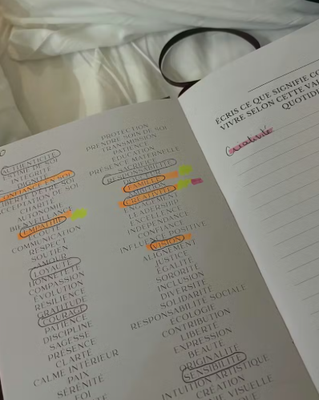 AUTHENTICITÉ
INTÉGRITÉ
CONFIANCE EN SOI
CLARTÉ
AUTONOMIE
BIENVEILLANCE
EMPATHIE
ÉCOUTE
COMMUNICATION
RESPECT
SOUTIEN
AMOUR
LOYAUTÉ
HONNÊTETÉ
COMPASSION
ÉVOLUTION
RÉSILIENCE
GRATITUDE
COURAGE
PATIENCE
DISCIPLINE
SAGESSE
PRÉSENCE
CALME INTÉRIEUR
PAIX
SÉRÉNITÉ
FOI
PROTECTION
PRENDRE SOIN DE SOI
TRANSMISSION
GUIDANCE
ÉDUCATION
PRÉSENCE MATERNELLE
SACRIFICE
RESPONSABILITÉ
FAMILLE
AMBITION
CRÉATIVITÉ
LEADERSHIP
EXCELLENCE
INDÉPENDANCE
IMPACT POSITIF
INFLUENCE
VISION
ALIGNEMENT
JUSTICE
ÉGALITÉ
SORORITÉ
INCLUSION
DIVERSITÉ
SOLIDARITÉ
RESPONSABILITÉ SOCIALE
ÉCOLOGIE
CONTRIBUTION
LIBERTÉ
EXPRESSION
BEAUTÉ
ORIGINALITÉ
SENSIBILITÉ
INTUITION ARTISTIQUE
CRÉATION
VISUELLE
ÉCRIS CE QUE SIGNIFIE
VIVRE SELON CETTE
QUOTIDI
Créativité